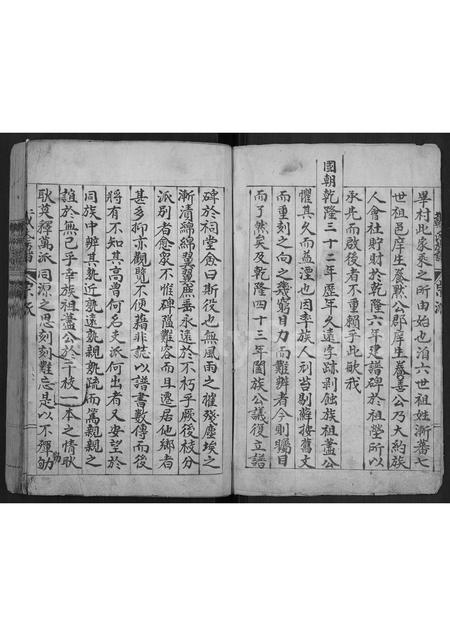 畢村此家乘之所由始也洎六世祖姓漸蕃七
世祖邑庠生養默公郡庠生養善公乃大約族
人會社貯財於乾隆六年建譜碑於祖塋所以
承先而啟後者不重賴乎此歟我
國朝乾隆三十二年歷年久遠字跡剥蝕族祖蓋公
懼其久而益湮也因率族人刮苔剔蘚按舊文
而重刻之向之幾窮目力而難辨者今則矚目
而了然矣及乾隆四十三年闔族公議復立譜
碑於祠堂僉曰斯役也無風雨之摧殘塵埃之
漸漬綿綿翼翼庶垂永遠於不朽乎厥後枝分
派別者愈衆不惟碑隘難容而且遠居他鄉者
甚多抑亦觀覽不便藉非誌以譜書數傳而後
將有不知其高曾何名支派何出者又安望於
同族中辨其孰近孰遠孰親孰疏而篤親親之
誼於無已乎幸族祖蓋公於千枝一本之情耿
耿莫釋萬派同源之思刻刻難忘是以不憚劬